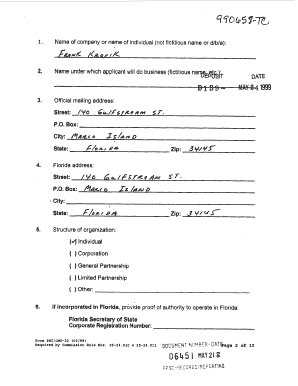 990658-TC
1. Name of company or name of individual (not fictitious name or d/b/a):
Frank Krofik
2. Name under which applicant will do business (fictitious name, etc.):
DEPOSIT DATE
D139 MAY 24 1999
3. Official mailing address:
Street: 140 Gulfstream St.
P.O. Box:
City: Marco Island
State: Florida Zip: 34145
4. Florida address:
Street: 140 Gulfstream St.
P.O. Box: Marco Island
City:
State: Florida Zip: 34145
5. Structure of organization:
(✓) Individual
( ) Corporation
( ) General Partnership
( ) Limited Partnership
( ) Other:
6. If incorporated in Florida, provide proof of authority to operate in Florida:
Florida Secretary of State
Corporate Registration Number:
Required by Commission Rule Nos. 25-24.510 & 25-24.511
DOCUMENT NUMBER-DATE
Page 2 of 10
06451 MAY 21
FPSC-RECORDS/REPORTING